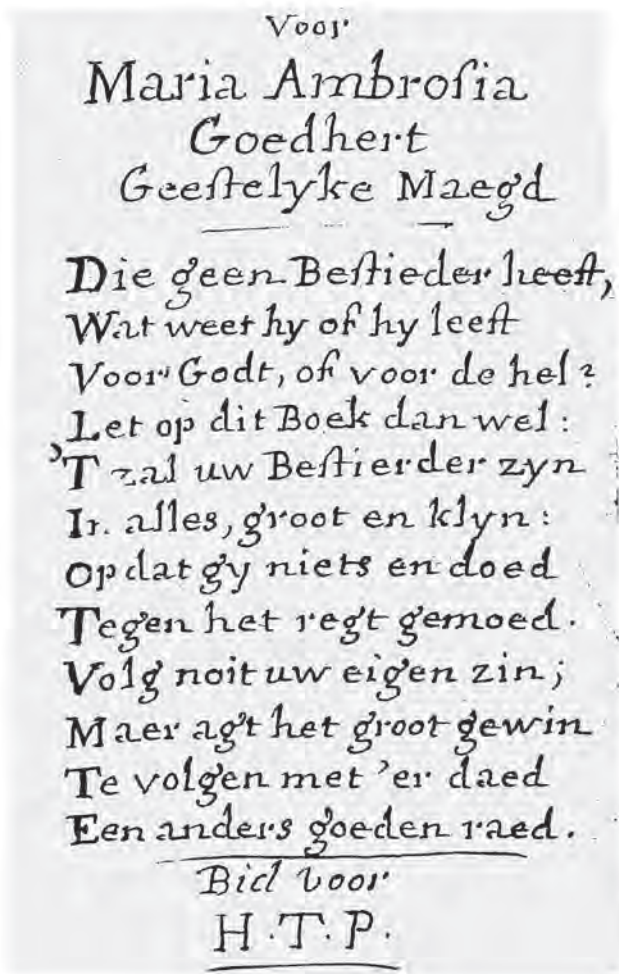 Voor
Maria Ambrosia
Goedhert
Geestelyke Maegd
Die geen Bestieder heeft,
Wat weet hy of hy leeft
Voor Godt, of voor de hel?
Let op dit Boek dan wel:
'T zal uw Bestierder zyn
In alles, groot en klyn:
Op dat gy niets en doed
Tegen het regt gemoed.
Volg noit uw eigen zin;
Maer ag't het groot gewin
Te volgen met 'er daed
Een anders goeden raed.
Bid voor
H.T.P.